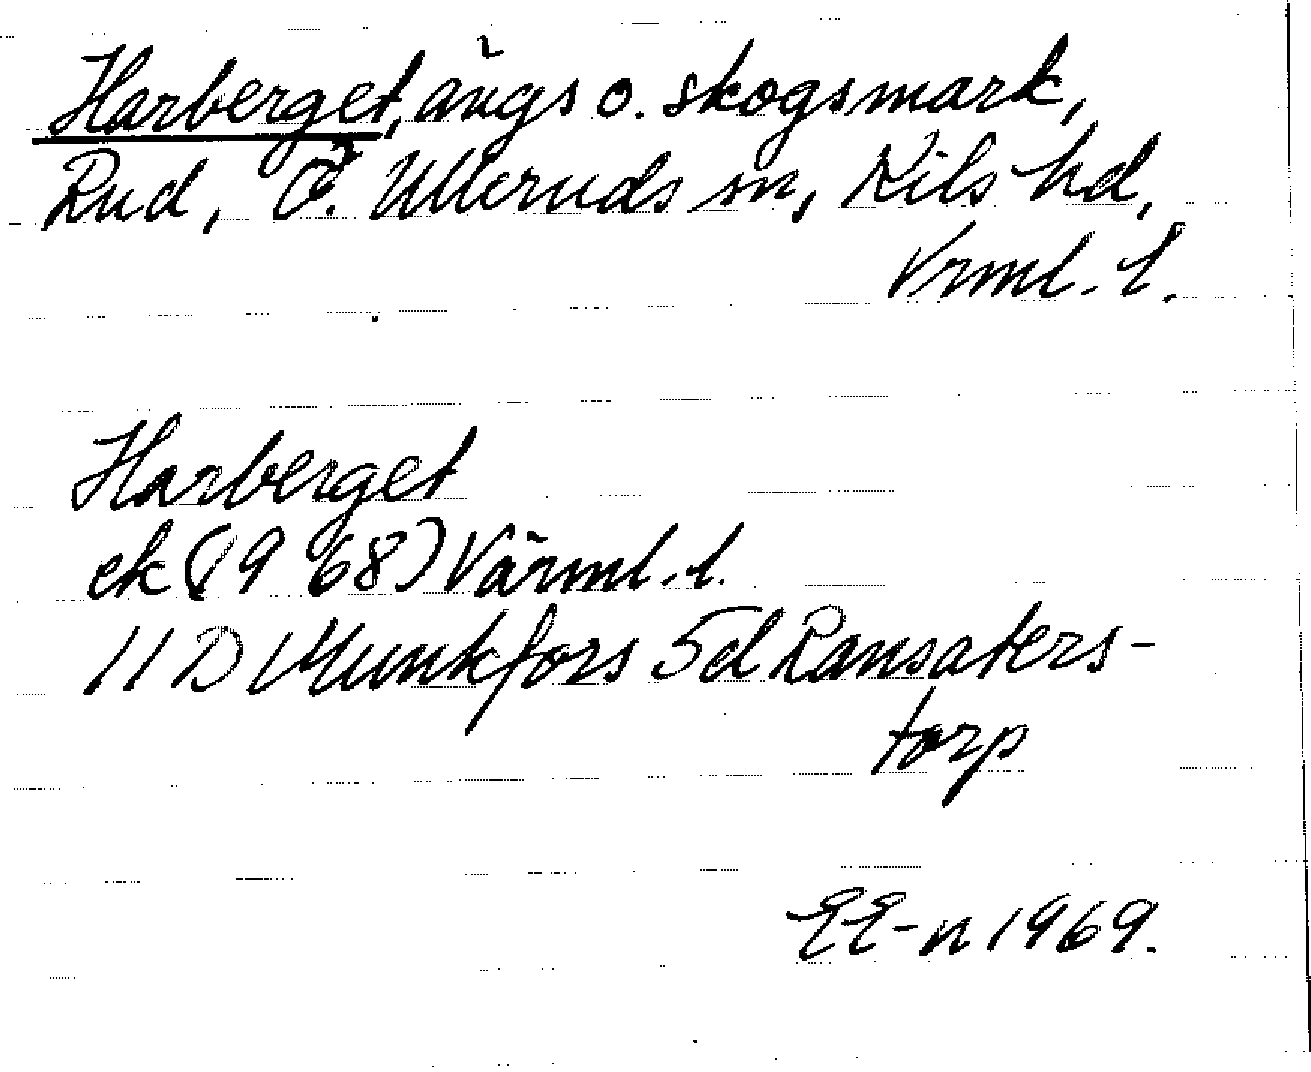 Harberget, ängs o. skogsmark,
Rud, Ö. Ulleruds sn, Kils hd,
Vrml. l.
Harberget
ek (1968) Värml. l.
11 D Munkfors 5d Ransäters-
torp
EE-n 1969.